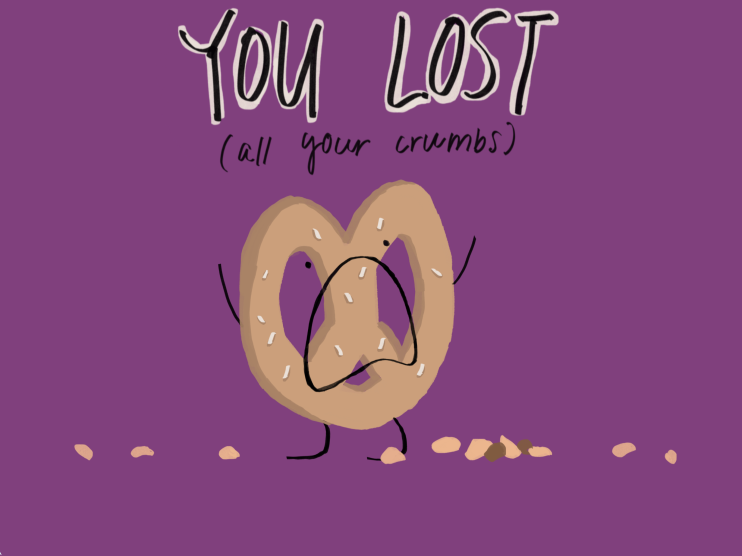 YOU LOST
(all your crumbs)